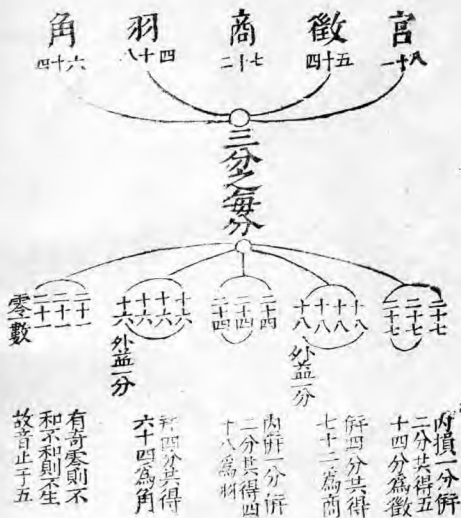 宮
八十一
徵
五十四
商
七十二
羽
四十八
角
六十四
三分之每分
二十七
二十七
二十七
十八
十八
十八
十八
外益一分
二十四
二十四
二十四
十六
十六
十六
十六
外益一分
二十一
二十一
二十一
零數
內損一分併
二分共得五
十四分為徵
併四分共得
七十二為商
內併一分併
二分共得四
十八為羽
併四分共得
六十四為角
有奇零則不
和不和則不生
故音止于五